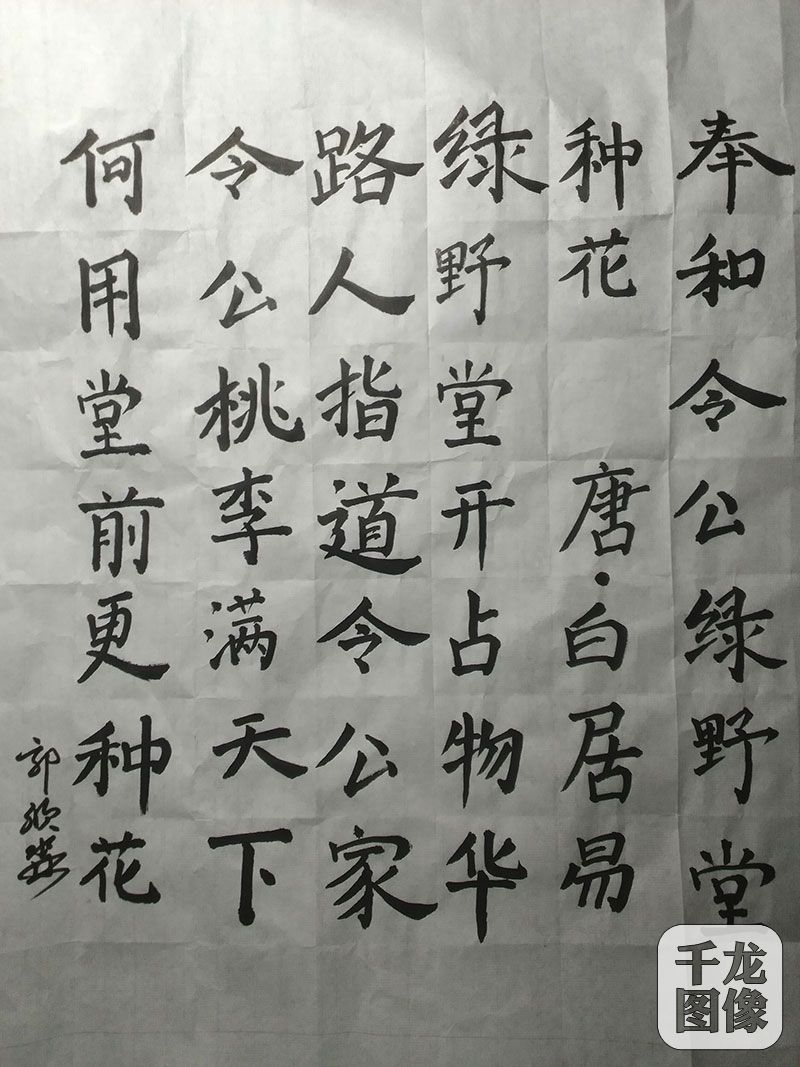 奉和令公绿野堂
种花 唐·白居易
绿野堂开占物华
路人指道令公家
令公桃李满天下
何用堂前更种花
郭
千龙
图像